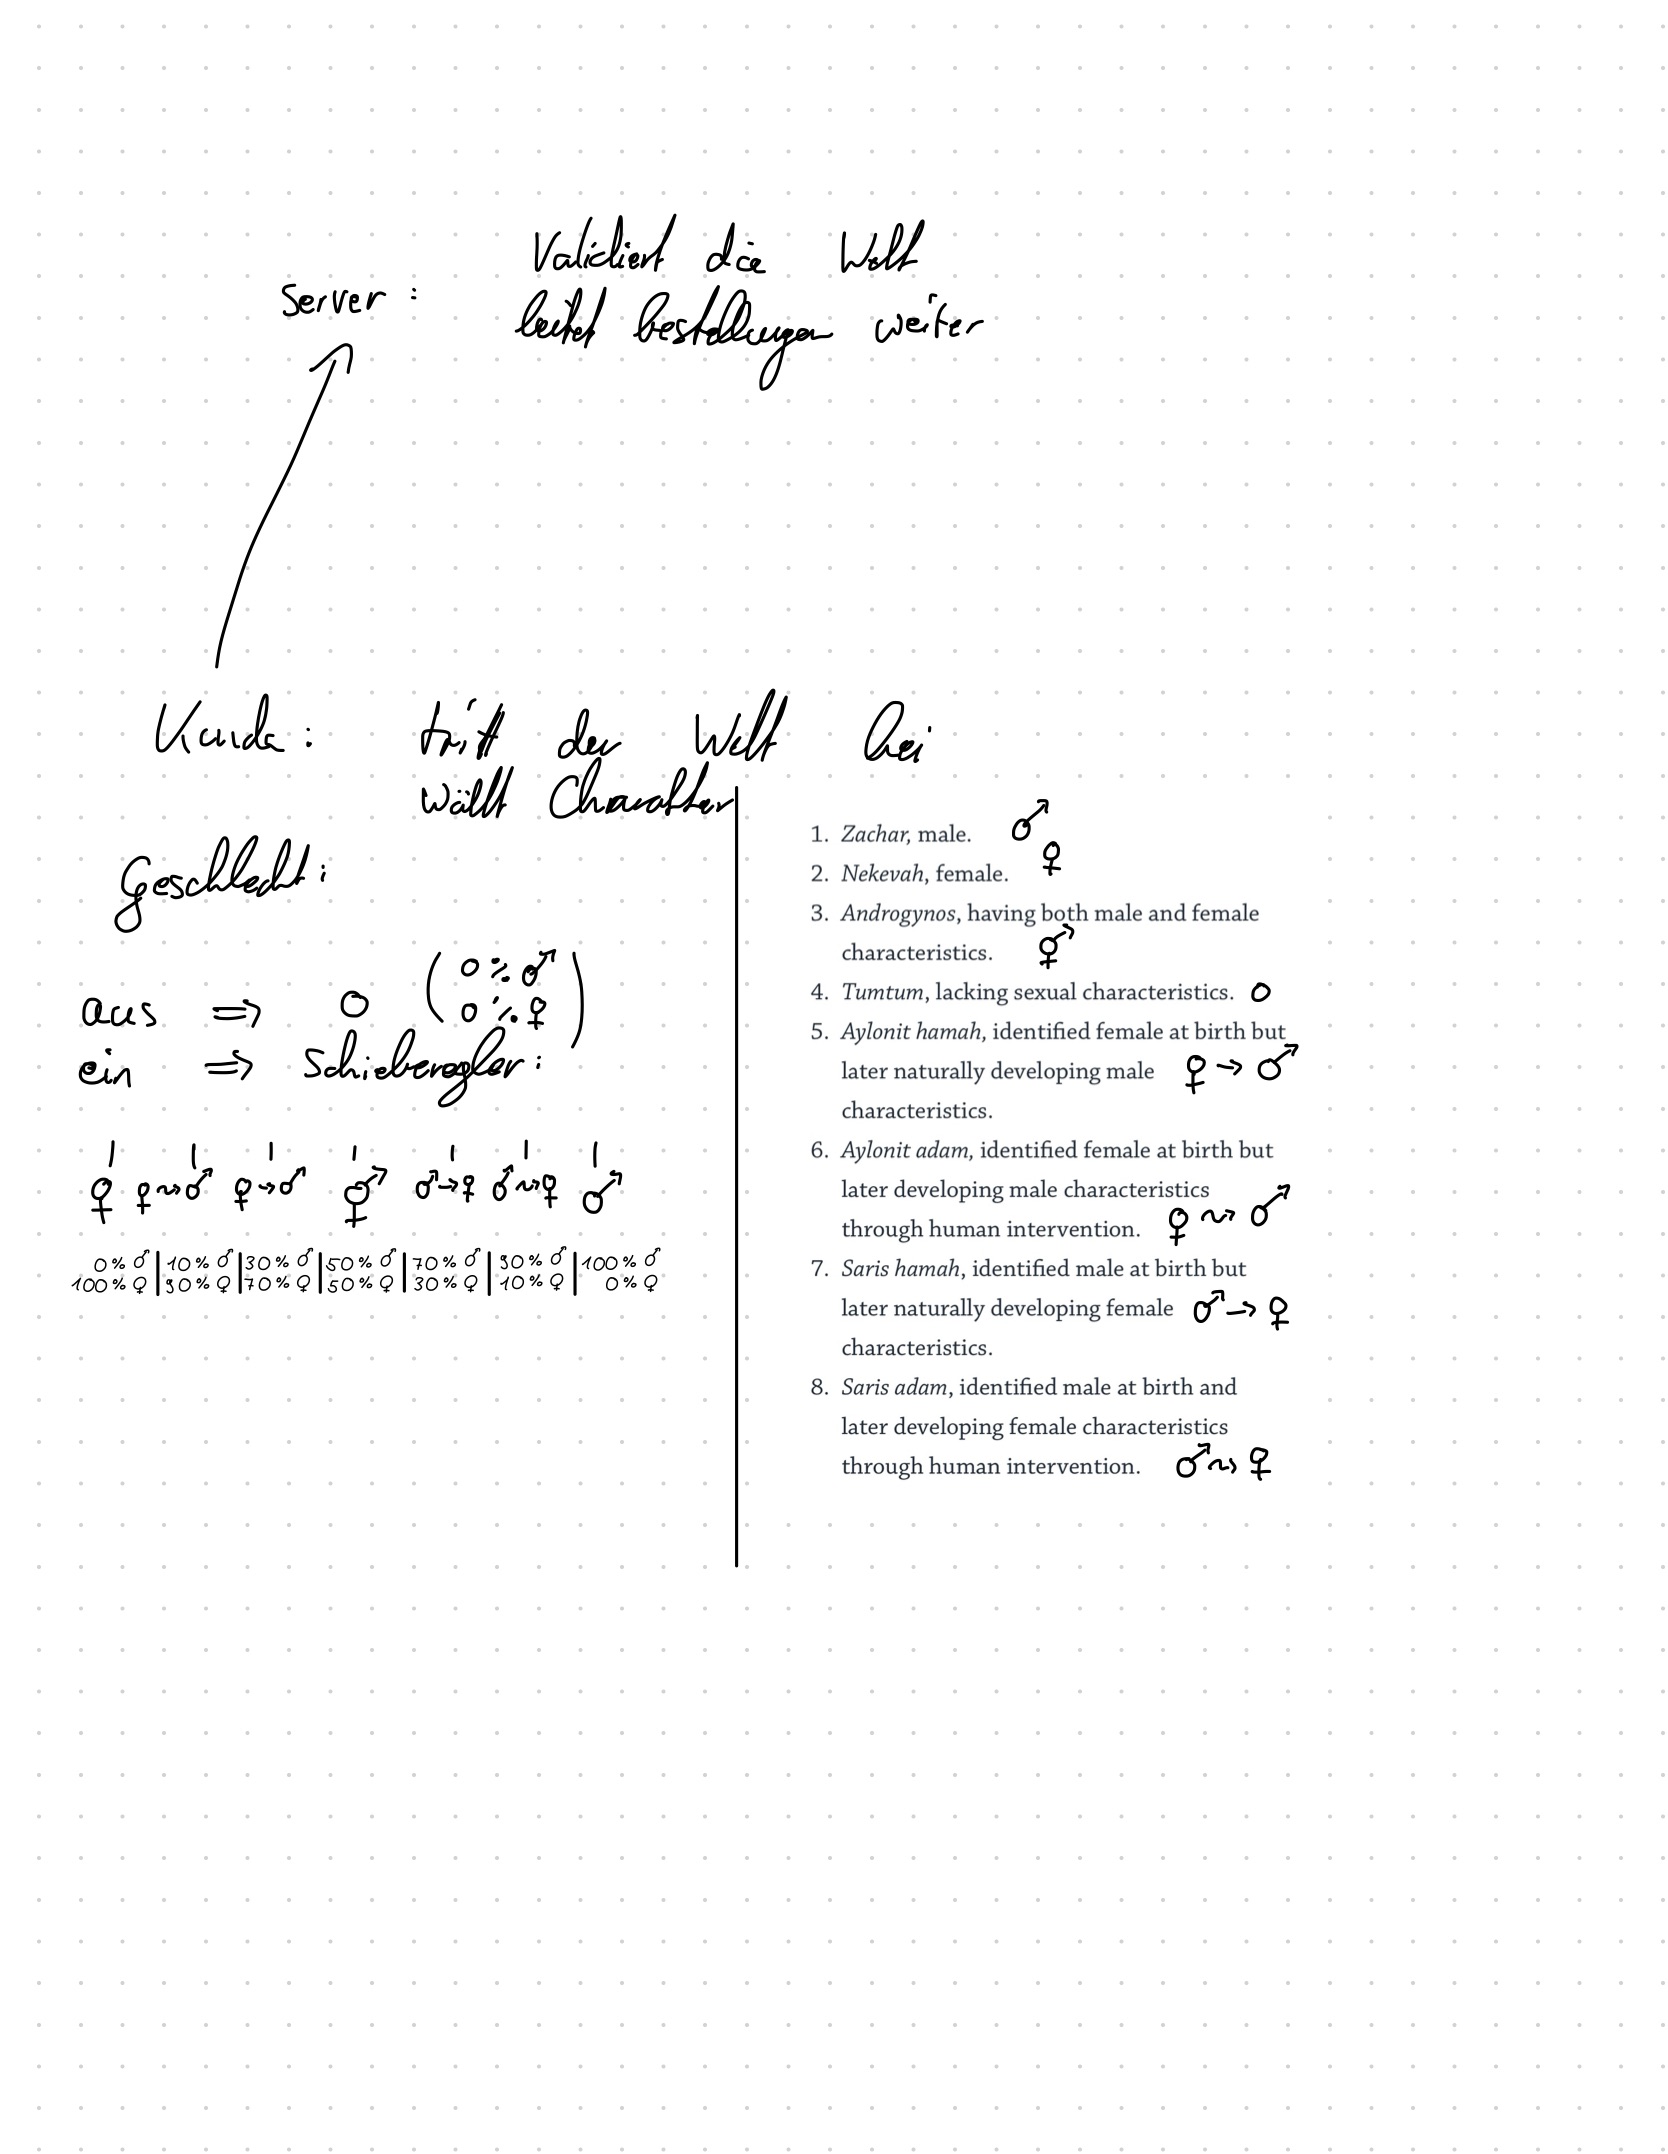 Server :
Validiert die Welt
leitet bestellungen weiter
Kunde : tritt der Welt bei
wällt Charakter
Geschlecht :
aus ⇒ O ( 0 % ♂
0 % ♀ )
ein ⇒ Schieberegler :
♀ ♀⇝♂ ♀→♂ ⚥ ♂→♀ ♂⇝♀ ♂
0 % ♂ | 10 % ♂ | 30 % ♂ | 50 % ♂ | 70 % ♂ | 90 % ♂ | 100 % ♂
100 % ♀ | 90 % ♀ | 70 % ♀ | 50 % ♀ | 30 % ♀ | 10 % ♀ | 0 % ♀
1. Zachar, male. ♂
2. Nekevah, female. ♀
3. Androgynos, having both male and female
characteristics. ⚥
4. Tumtum, lacking sexual characteristics. O
5. Aylonit hamah, identified female at birth but
later naturally developing male ♀ → ♂
characteristics.
6. Aylonit adam, identified female at birth but
later developing male characteristics
through human intervention. ♀ ⇝ ♂
7. Saris hamah, identified male at birth but
later naturally developing female ♂ → ♀
characteristics.
8. Saris adam, identified male at birth and
later developing female characteristics
through human intervention. ♂ ⇝ ♀